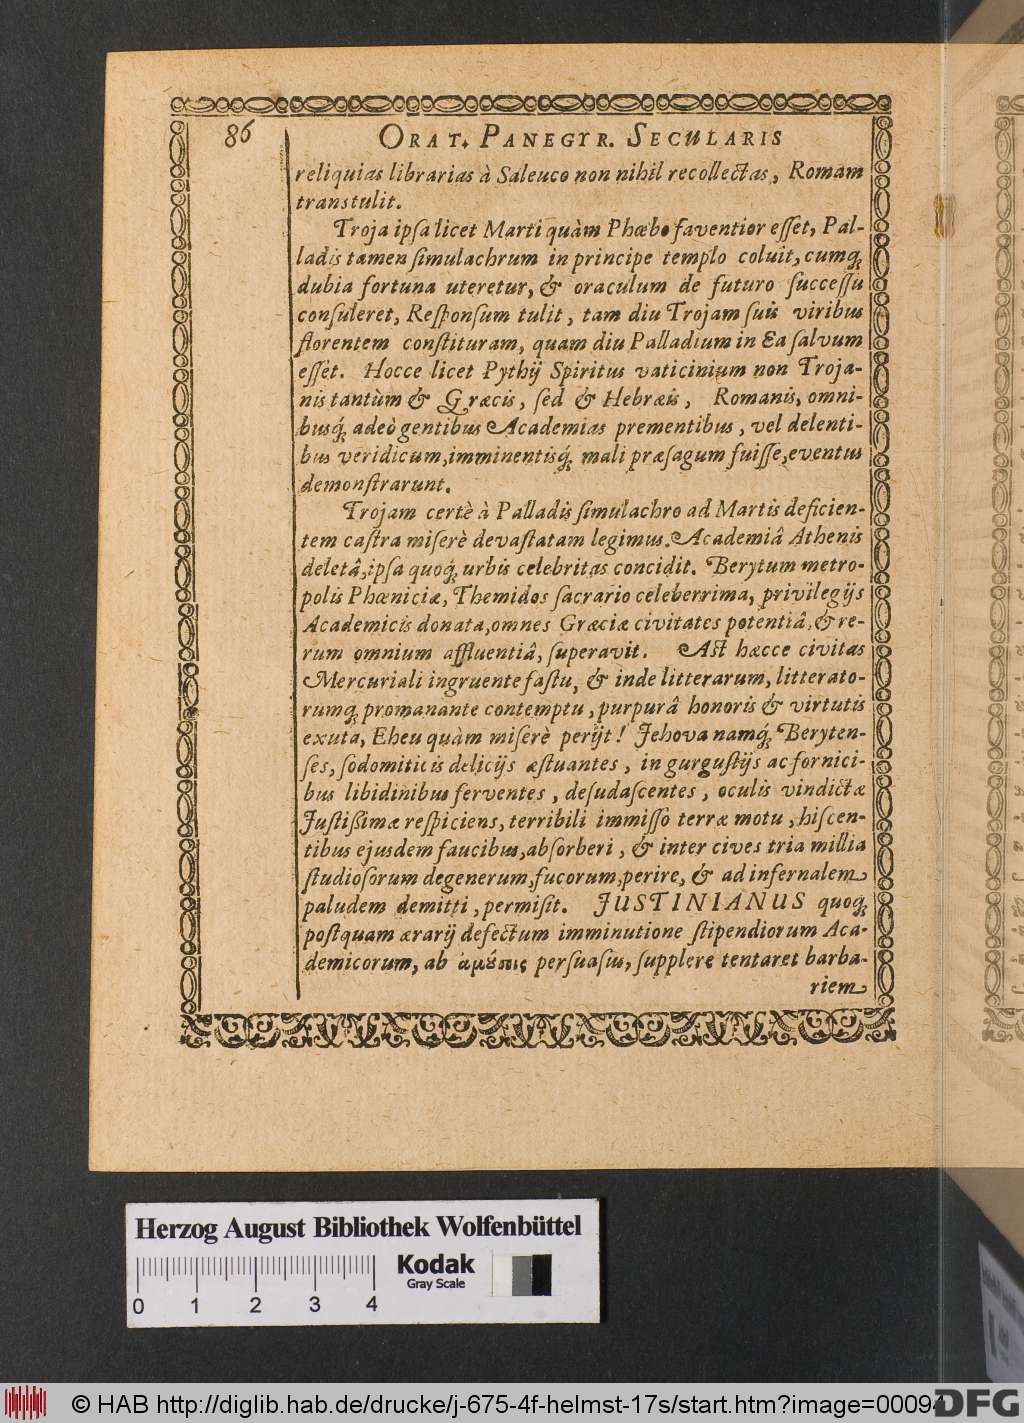 86
ORAT. PANEGYR. SECULARIS
reliquias librarias à Saleuco non nihil recollectas, Romam
transtulit.
Troja ipſa licet Marti quàm Phœbo faventior eſſet, Pal-
ladis tamen ſimulachrum in principe templo coluit, cumq́;
dubia fortuna uteretur, & oraculum de futuro ſucceſſu
conſuleret, Reſponſum tulit, tam diu Trojam ſuis viribus
florentem conſtituram, quam diu Palladium in Ea ſalvum
eſſet. Hocce licet Pythij Spiritus vaticinium non Troja-
nis tantùm & Græcis, ſed & Hebræis, Romanis, omni-
busq́; adeò gentibus Academias prementibus, vel delenti-
bus veridicum, imminentisq́; mali præſagum fuiſſe, eventus
demonſtrarunt.
Trojam certè à Palladis ſimulachro ad Martis deficien-
tem caſtra miſerè devaſtatam legimus. Academiâ Athenis
deletâ, ipſa quoq́; urbis celebritas concidit. Berytum metro-
polis Phœniciæ, Themidos ſacrario celeberrima, privilegijs
Academicis donata, omnes Græciæ civitates potentiâ, & re-
rum omnium affluentiâ, ſuperavit. Aſt hæcce civitas
Mercuriali ingruente faſtu, & inde litterarum, litterato-
rumq; promanante contemptu, purpurâ honoris & virtutis
exuta, Eheu quàm miſerè perijt! Jehova namq́; Beryten-
ſes, ſodomiticis delicijs æſtuantes, in gurguſtijs ac fornici-
bus libidinibus ferventes, deſudaſcentes, oculis vindictæ
Juſtißimæ reſpiciens, terribili immiſſo terræ motu, hiſcen-
tibus ejusdem faucibus, abſorberi, & inter cives tria millia
ſtudioſorum degenerum, fucorum, perire, & ad infernalem
paludem demitti, permiſit. JUSTINIANUS quoq́;
poſtquam ærarij defectum imminutione ſtipendiorum Aca-
demicorum, ab ἀμέσοις perſuaſus, ſupplere tentaret barba-
riem
Herzog August Bibliothek Wolfenbüttel
Kodak
Gray Scale
0 1 2 3 4
© HAB http://diglib.hab.de/drucke/j-675-4f-helmst-17s/start.htm?image=00094
DFG